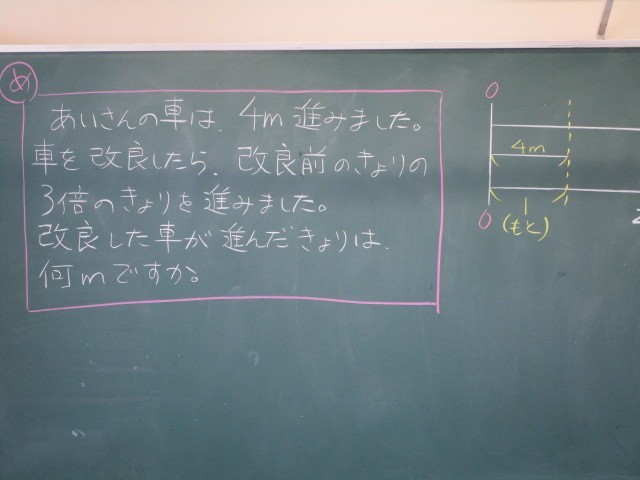 め
あいさんの車は、4m進みました。
車を改良したら、改良前のきょりの
3倍のきょりを進みました。
改良した車が進んだきょりは、
何mですか。
0
4m
1
0
(もと)